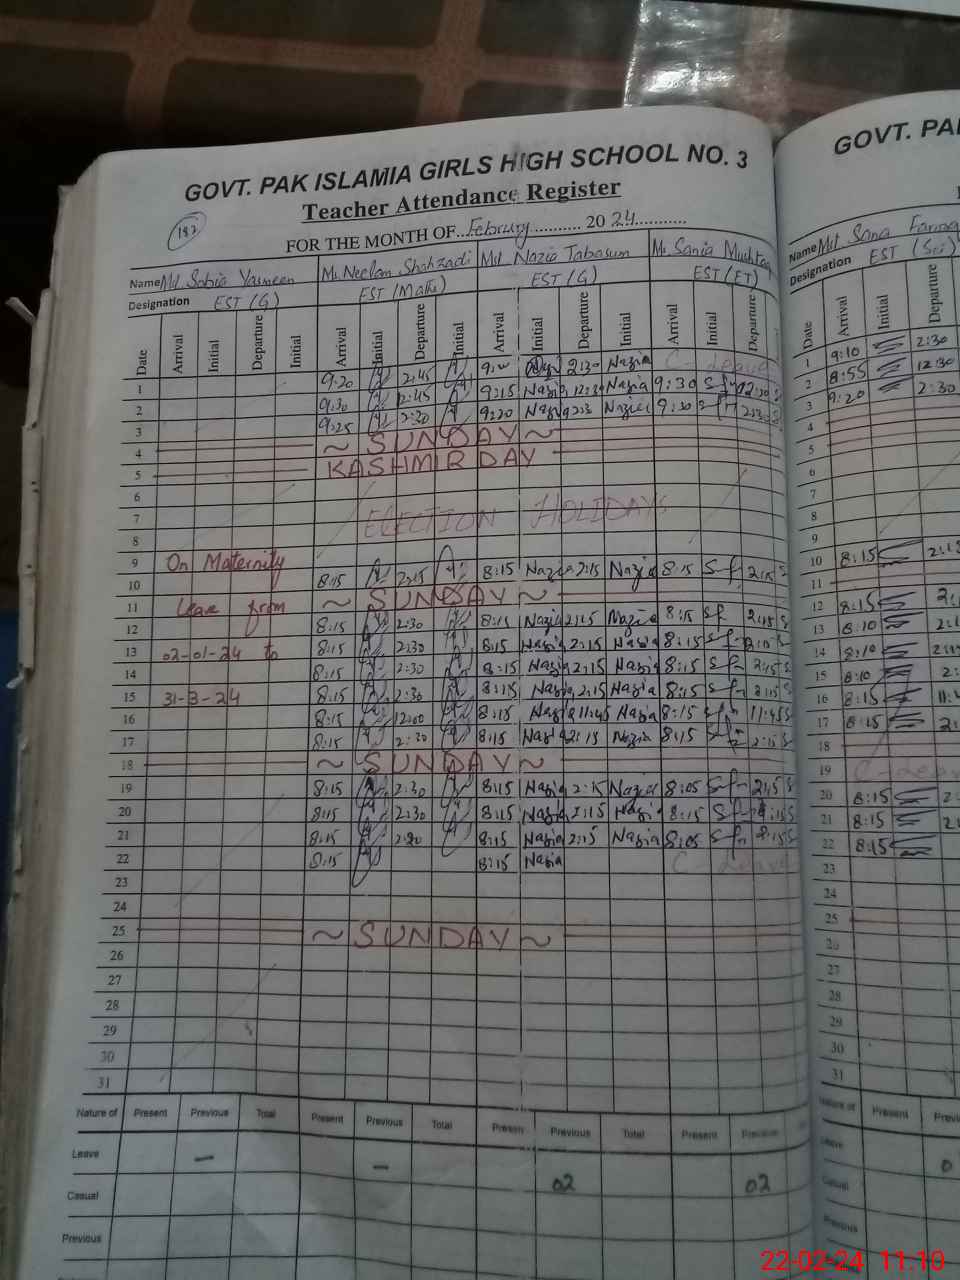 GOVT. PAK ISLAMIA GIRLS HIGH SCHOOL NO. 3 GOVT. PA
Teacher Attendance Register
187
FOR THE MONTH OF..February.......... 2024...........
Name Md. Sabia Yasmeen Ms. Neelam Shahzadi Md. Nazia Tabasum Ms. Sania Mushtaq Name Mst. Sana
Designation EST (G) EST (Maths) EST (G) EST (ET) Designation EST (Sci)
Date Arrival Initial Departure Initial Arrival Initial Departure Initial Arrival Initial Departure Initial Arrival Initial Departure Date Arrival Initial Departure
1 9:20 2:45 2:30 Nazia C-Leave 1 9:10 2:30
2 9:30 2:45 9:15 Nazia 12:30 Nazia 9:30 12:30 2 8:55 12:30
3 9:25 2:30 9:20 Nazia 2:30 Nazia 9:30 2:30 3 9:20 2:30
4 ~ SUNDAY ~ 4
5 KASHMIR DAY 5
6 6
7 ELECTION HOLIDAYS 7
8 8
9 On Maternity
10 8:15 2:15 8:15 Nazia 2:15 Nazia 8:15 2:15 10 8:15 2:15
11 Leave from ~ SUNDAY ~ 11
12 8:15 2:30 8:15 Nazia 2:15 Nazia 8:15 2:15 12 8:15
13 02-01-24 to 8:15 2:30 8:15 Nazia 2:15 Nazia 8:15 13 8:10
14 8:15 2:30 8:15 Nazia 2:15 Nazia 8:15 2:15 14 8:10
15 31-3-24 8:15 2:30 8:15 Nazia 2:15 Nazia 8:15 2:15 15 8:10
16 8:15 12:00 8:15 Nazia 11:45 Nazia 8:15 11:45 16 8:15
17 8:15 2:30 8:15 Nazia 2:15 Nazia 8:15 2:15 17 8:15
18 ~ SUNDAY ~ 18
19 8:15 2:30 8:15 Nazia 2:15 Nazia 8:05 2:15 19 C-Leave
20 8:15 2:30 8:15 Nazia 2:15 Nazia 8:15 2:15 20 8:15
21 8:15 2:20 8:15 Nazia 2:15 Nazia 8:05 2:15 21 8:15
22 8:15 8:15 Nazia C-Leave 22 8:15
23 23
24 24
25 ~ SUNDAY ~ 25
26 26
27 27
28 28
29 29
30 30
31 31
Nature of Present Previous Total Present Previous Total Present Previous Total Present Previous Nature of Present
Leave — — Leave
Casual 02 02 Casual
Previous Previous
22-02-24 11:10